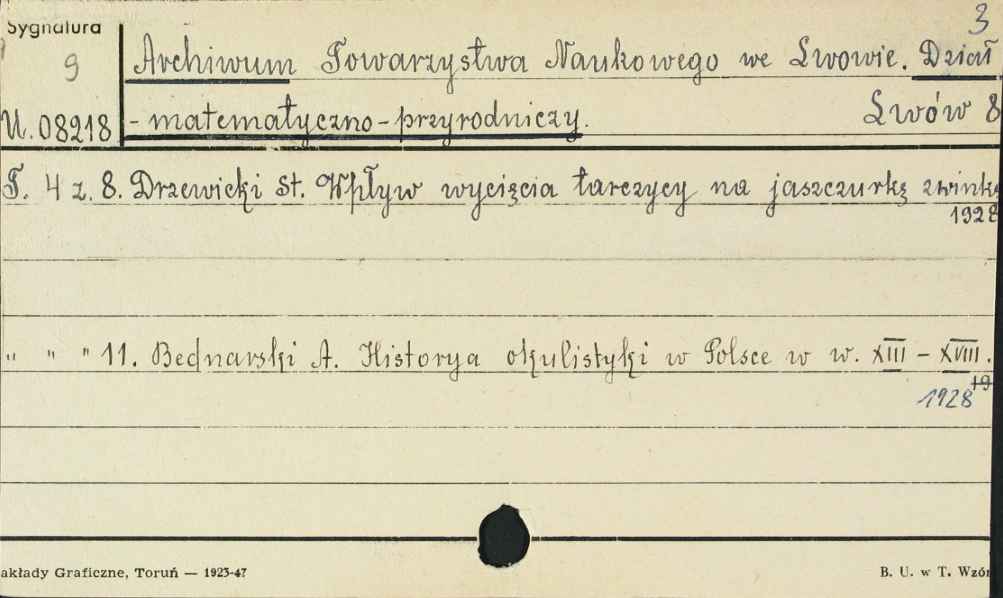 Sygnatura
3
9
Archiwum Towarzystwa Naukowego we Lwowie. Dział
U. 08218
- matematyczno - przyrodniczy.
Lwów 8
T. 4 z. 8. Drzewicki St. Wpływ wycięcia tarczycy na jaszczurkę zwinkę
1928
" " " 11. Bednarski A. Historya okulistyki w Polsce w w. XIII – XVIII.
19
1928
akłady Graficzne, Toruń — 1923-47
B. U. w T. Wzór